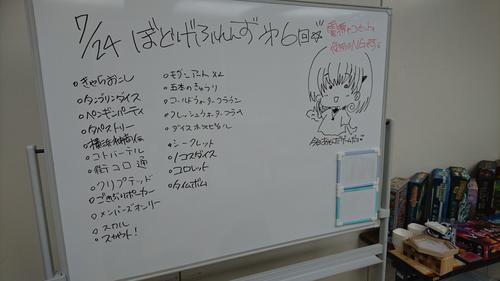 7/24 ぼどげふれんず 第6回
電源やコンセントの
使用はNGです。
・きゃらおこし
・タンブリンダイス
・ペンギンパーティ
・タペストリー
・横浜紳商伝
・コトバーテル
・街コロ 通
・クリプテッド
・ごきぶりポーカー
・メンバーズオンリー
・スカル
・スカウト!
・モダンアート ×2
・五本のきゅうり
・コールドウォーター クラウン
・フレッシュウォーター フライ
・ダイスホスピタル
・シークレット
・ノコスダイス
・コロレット
・タイムボム